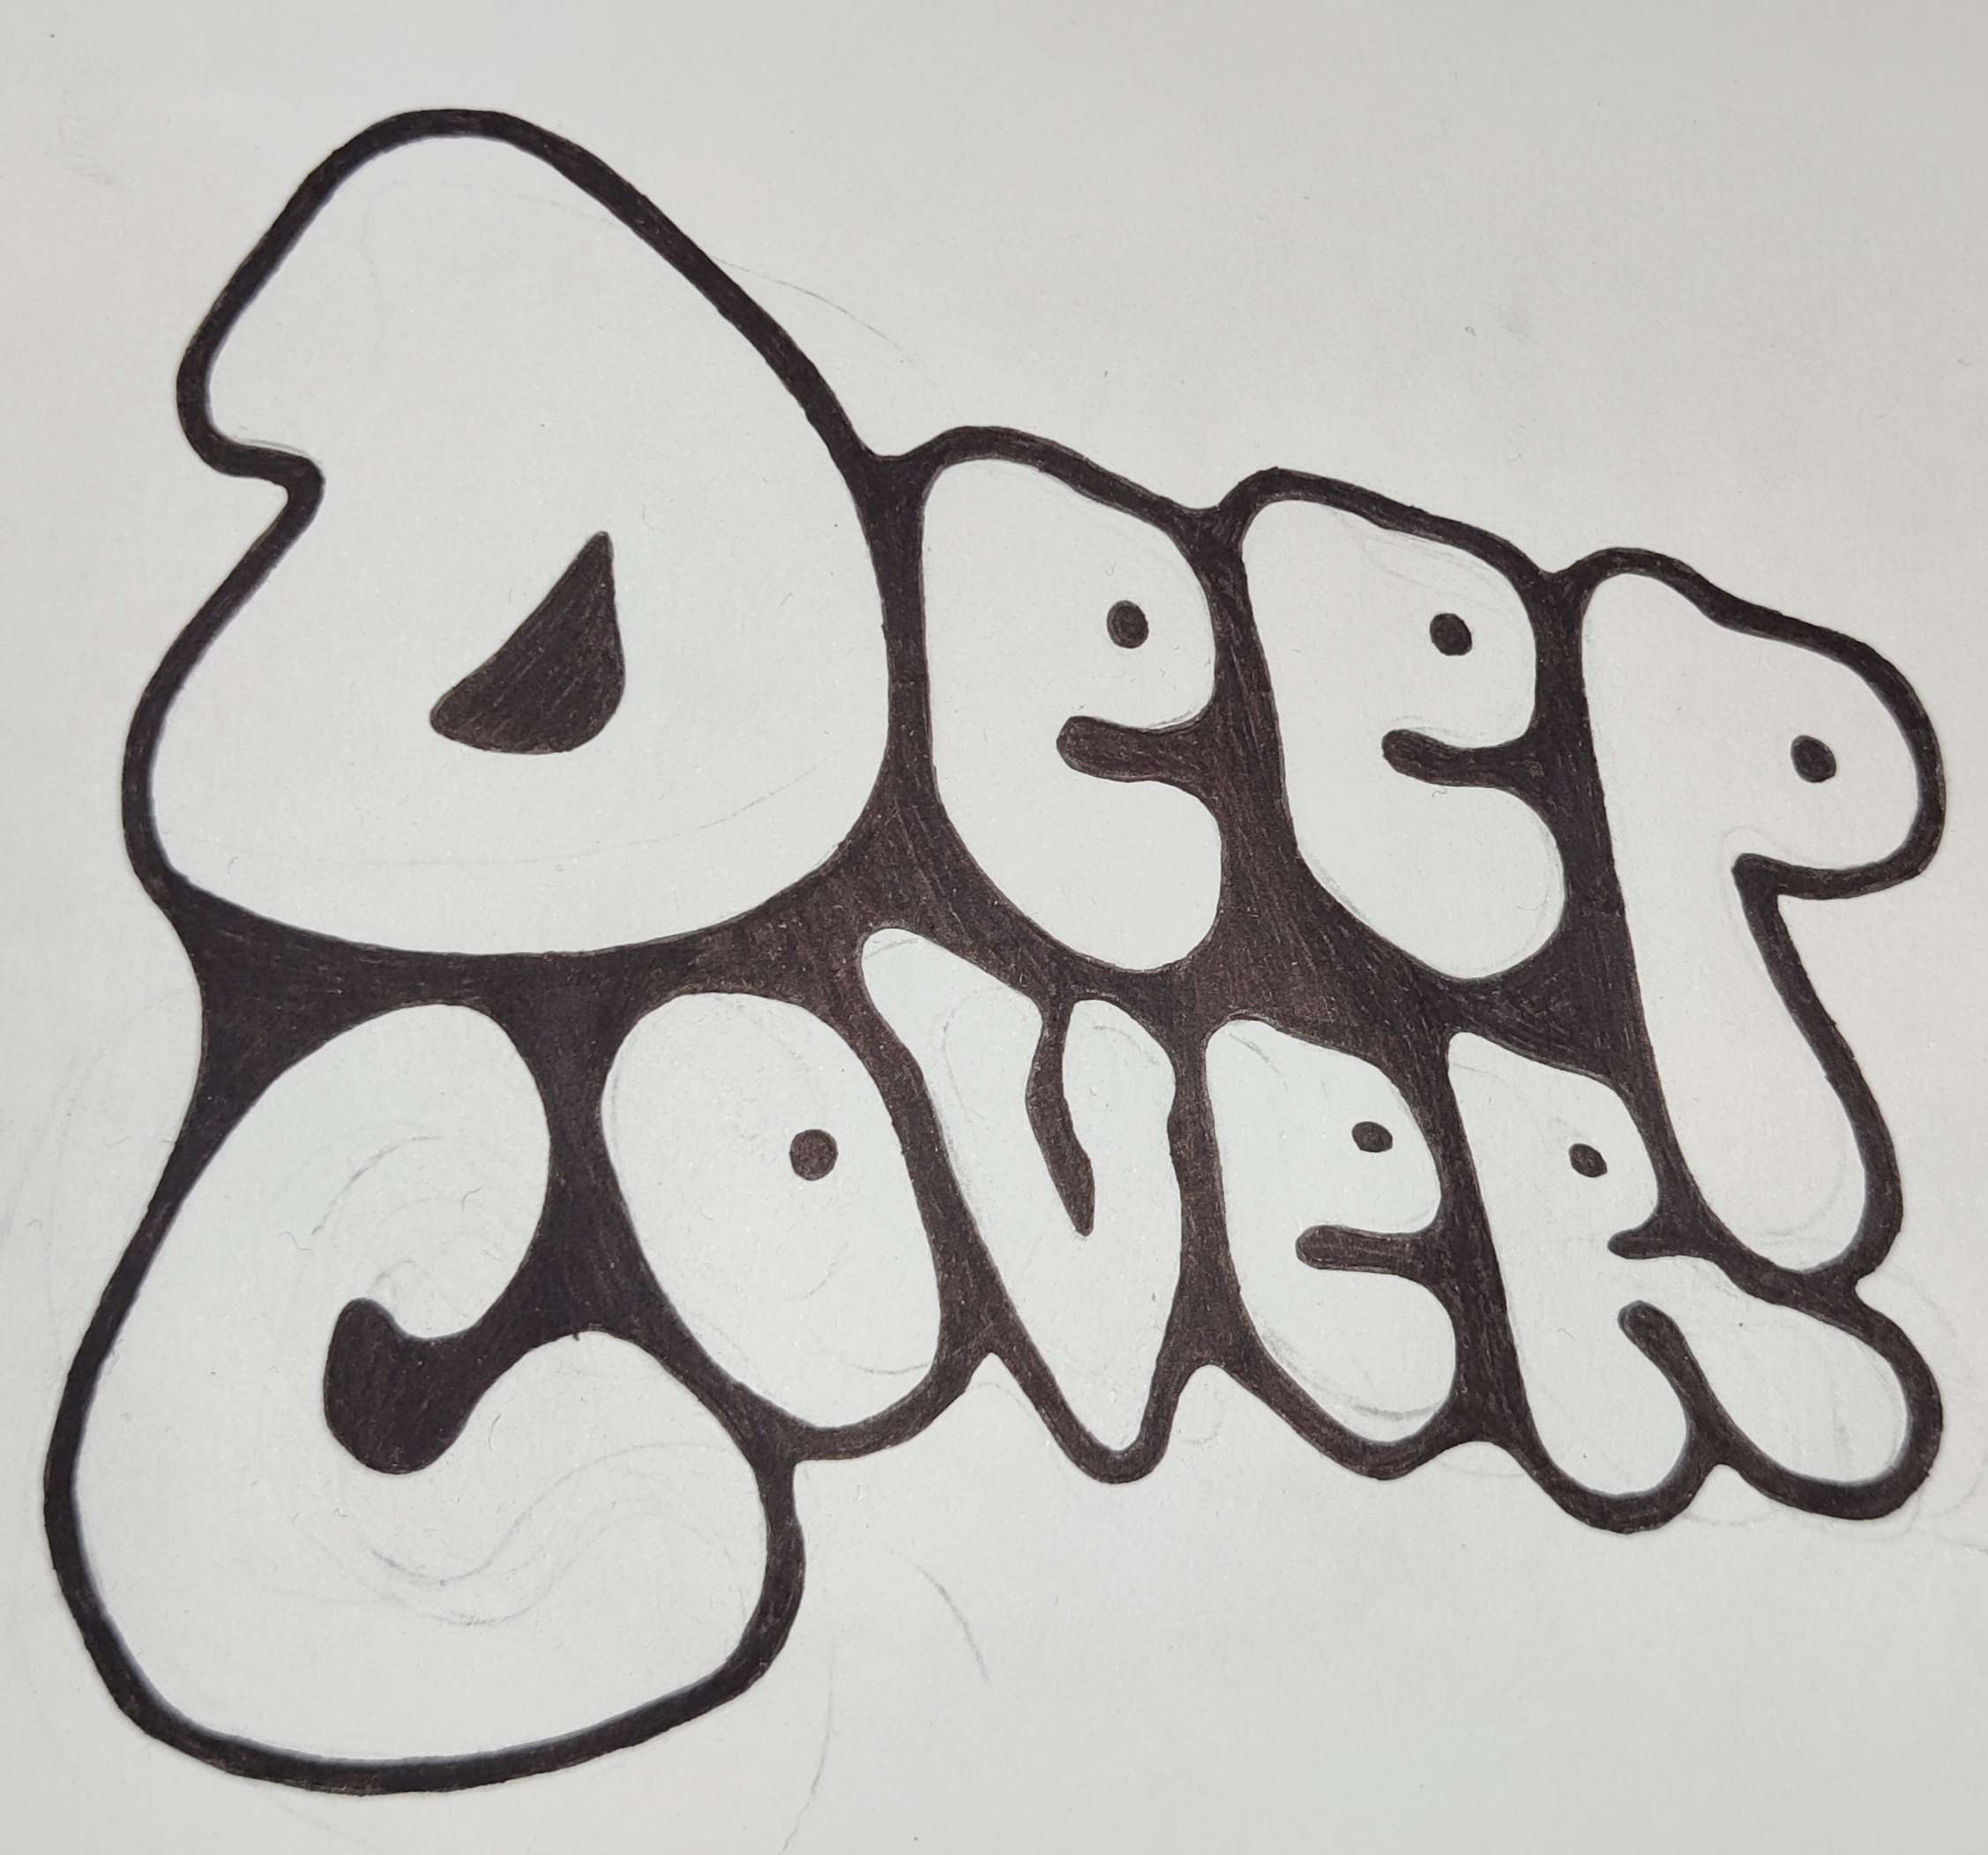 DEEP
COVER